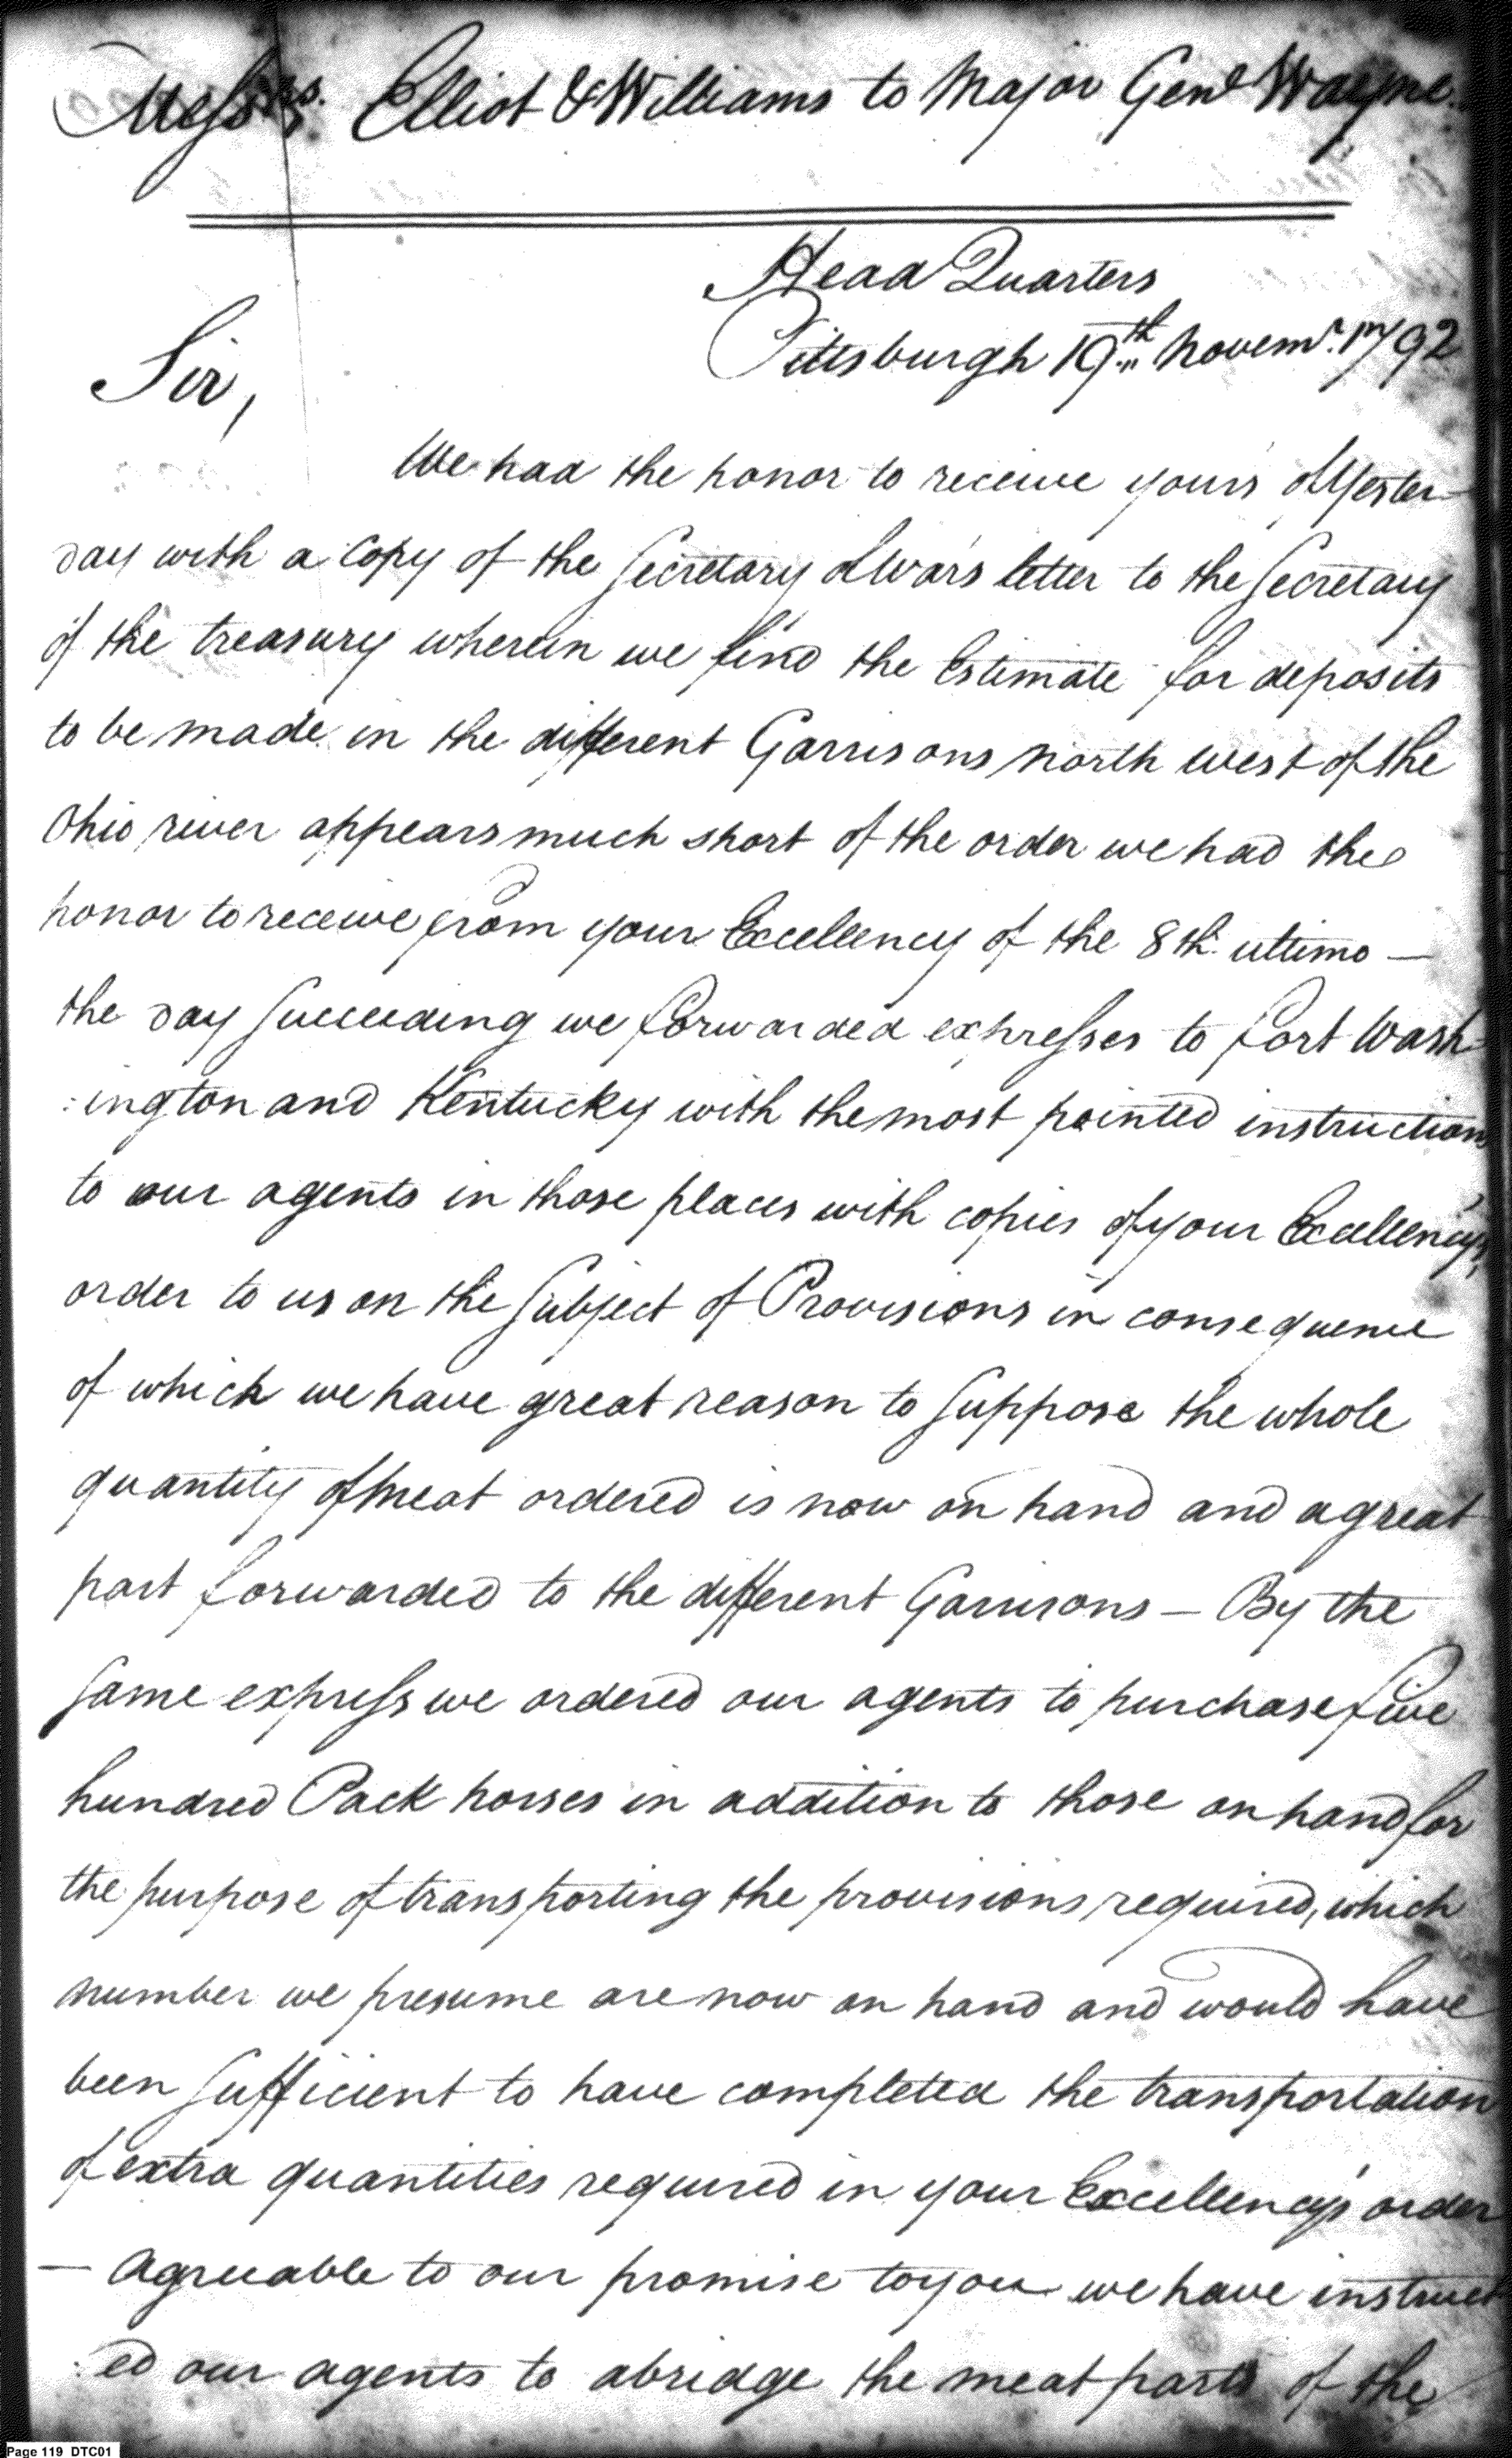 Messrs. Elliot & Williams to Major Genl Wayne.
Head Quarters
Pittsburgh 19th Novemr. 1792
Sir,
We had the honor to receive yours of Yester-
day with a Copy of the Secretary of War's letter to the Secretary
of the treasury wherein we find the Estimate for deposits
to be made in the different Garrisons north west of the
Ohio river appears much short of the order we had the
honor to receive from your Excellency of the 8th. ultimo —
the day Succeeding we forwarded expresses to fort Wash-
:ington and Kentucky with the most pointed instructions
to our agents in those places with copies of your Excellency's
order to us on the Subject of Provisions in consequence
of which we have great reason to Suppose the whole
quantity of meat ordered is now on hand and a great
part forwarded to the different Garrisons — By the
Same express we ordered our agents to purchase five
hundred Pack horses in addition to those on hand for
the purpose of transporting the provisions required, which
number we presume are now on hand and would have
been Sufficient to have completed the transportation
of extra quantities required in your Excellency's order
— agreeable to our promise to you we have instruct
:ed our agents to abridge the meat parts of the
Page 119 DTC01